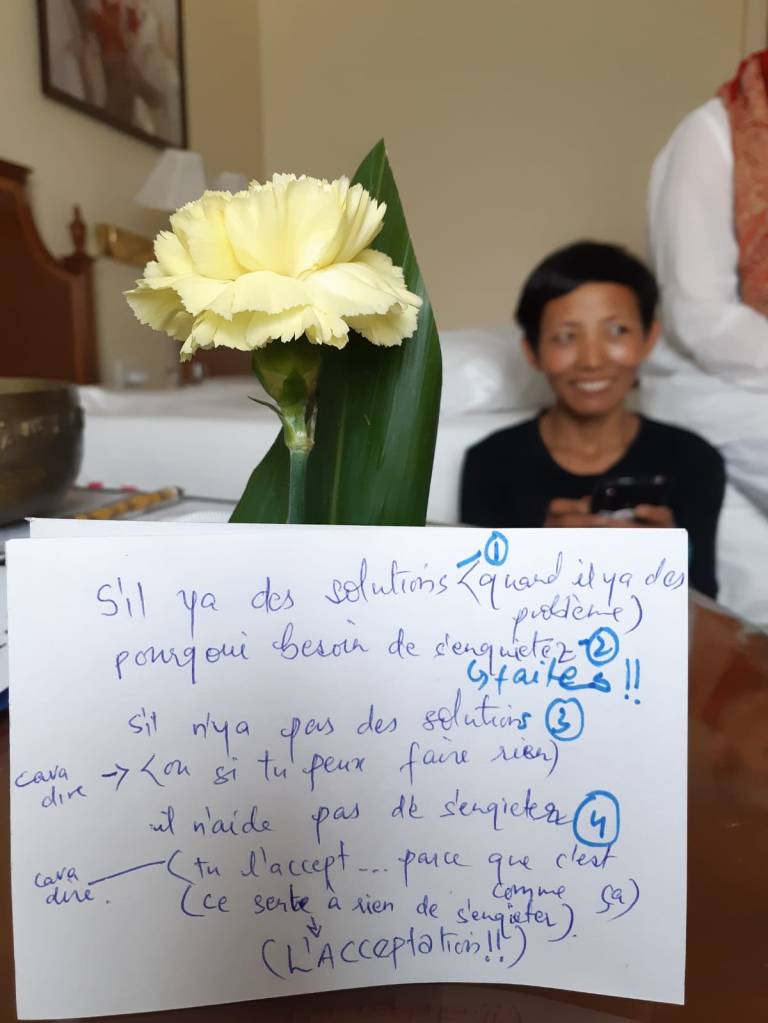 S'il ya des solutions ① <quand il ya des
problème)
pourqoui besoin de s'enquietez ②
↳ faites !!
s'il n'ya pas des solutions ③
cava dire → <ou si tu peux faire rien)
il n'aide pas de s'enqietez ④
cava dire. (tu l'accept... parce que c'est
comme ça)
(ce serte à rien de s'enqieter).
(L'ACCeptation!!)